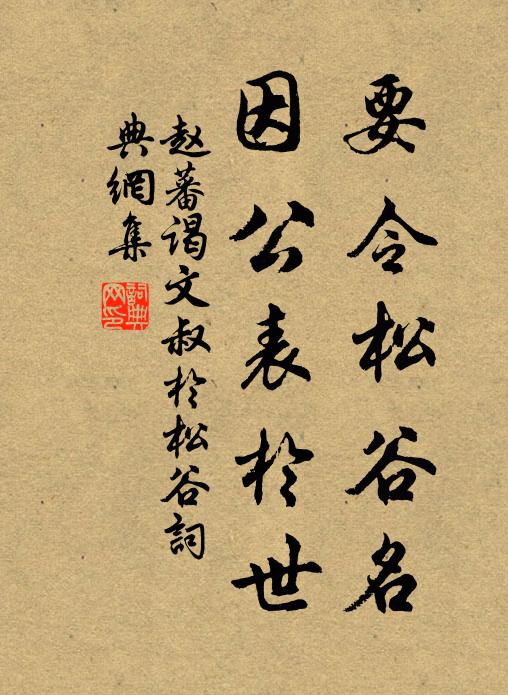 要令松谷名
因公表於世
赵蕃谒文叔於松谷詞
典網集
詞典
网印